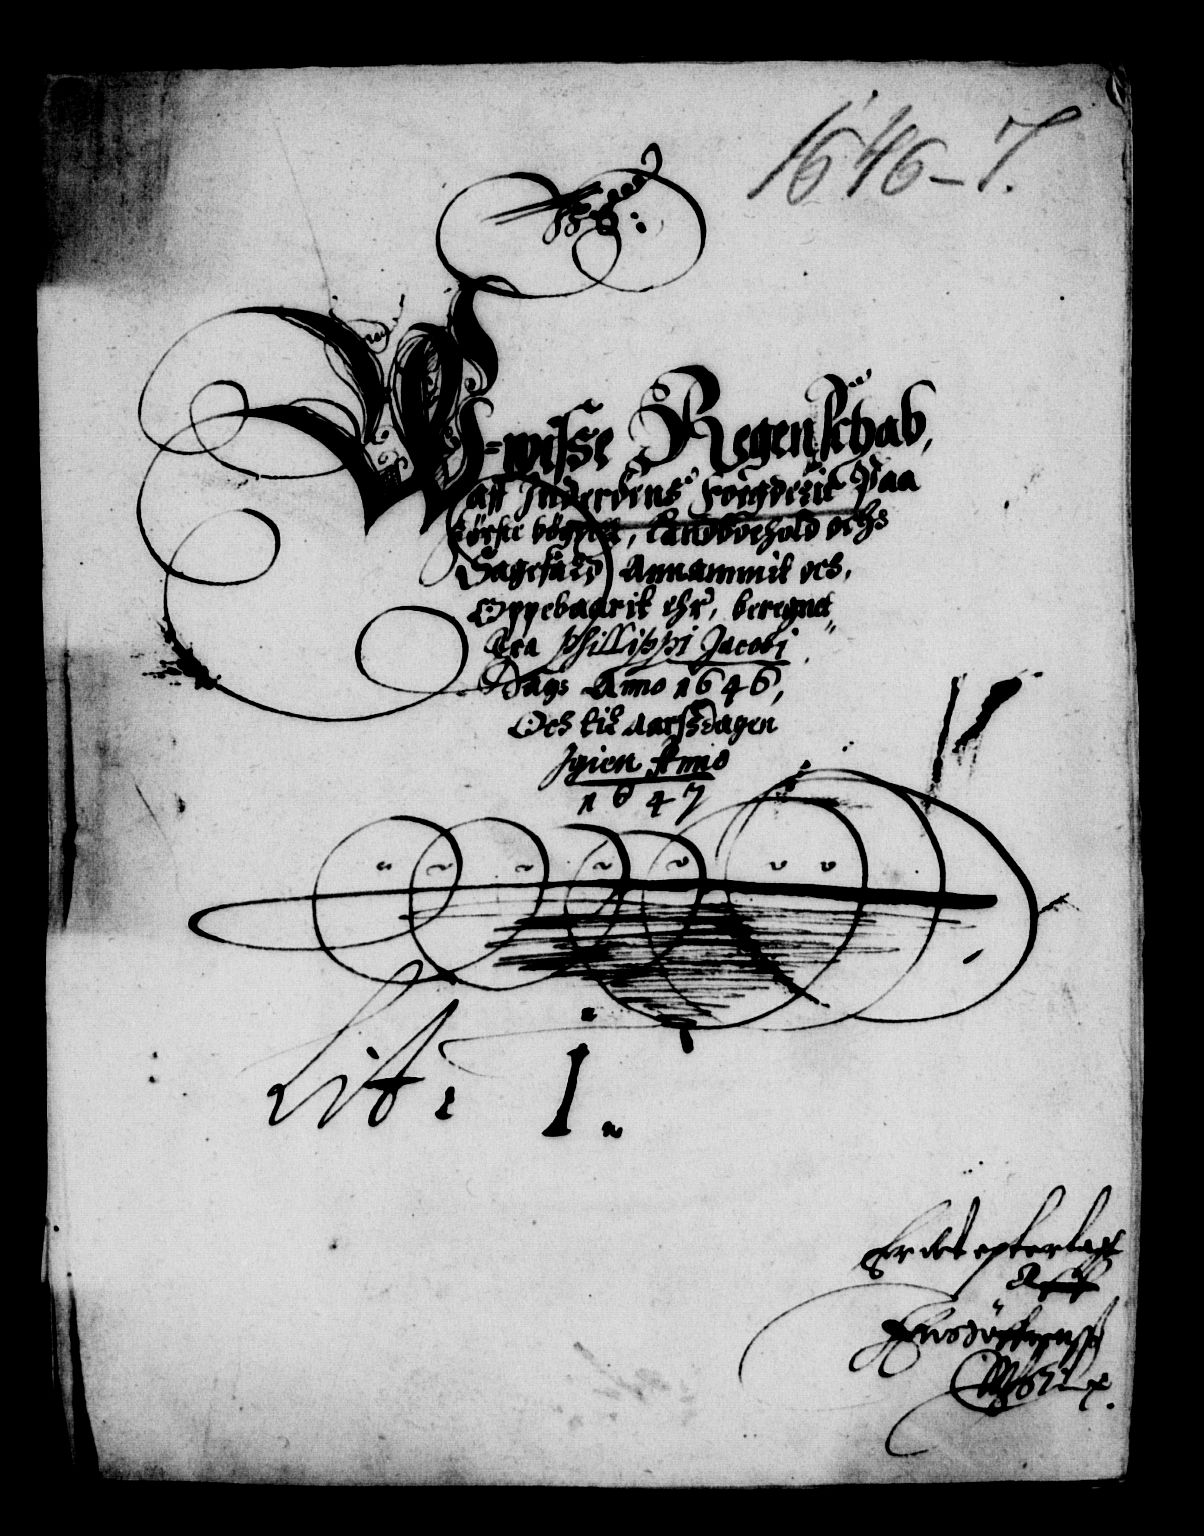 1646-7.
W-wisse Regenschab,
aff Inderøens Foigderie Paa
første bögxell, Landboehold ochs
Sagefald Annammit och,
Oppebaarit ehr, beregnet
Fra Phillippi Jacobi
Dags Anno 1646,
Och til Aarssdagen
Igien Anno
1647
Lit: I.
Er det epterlagt